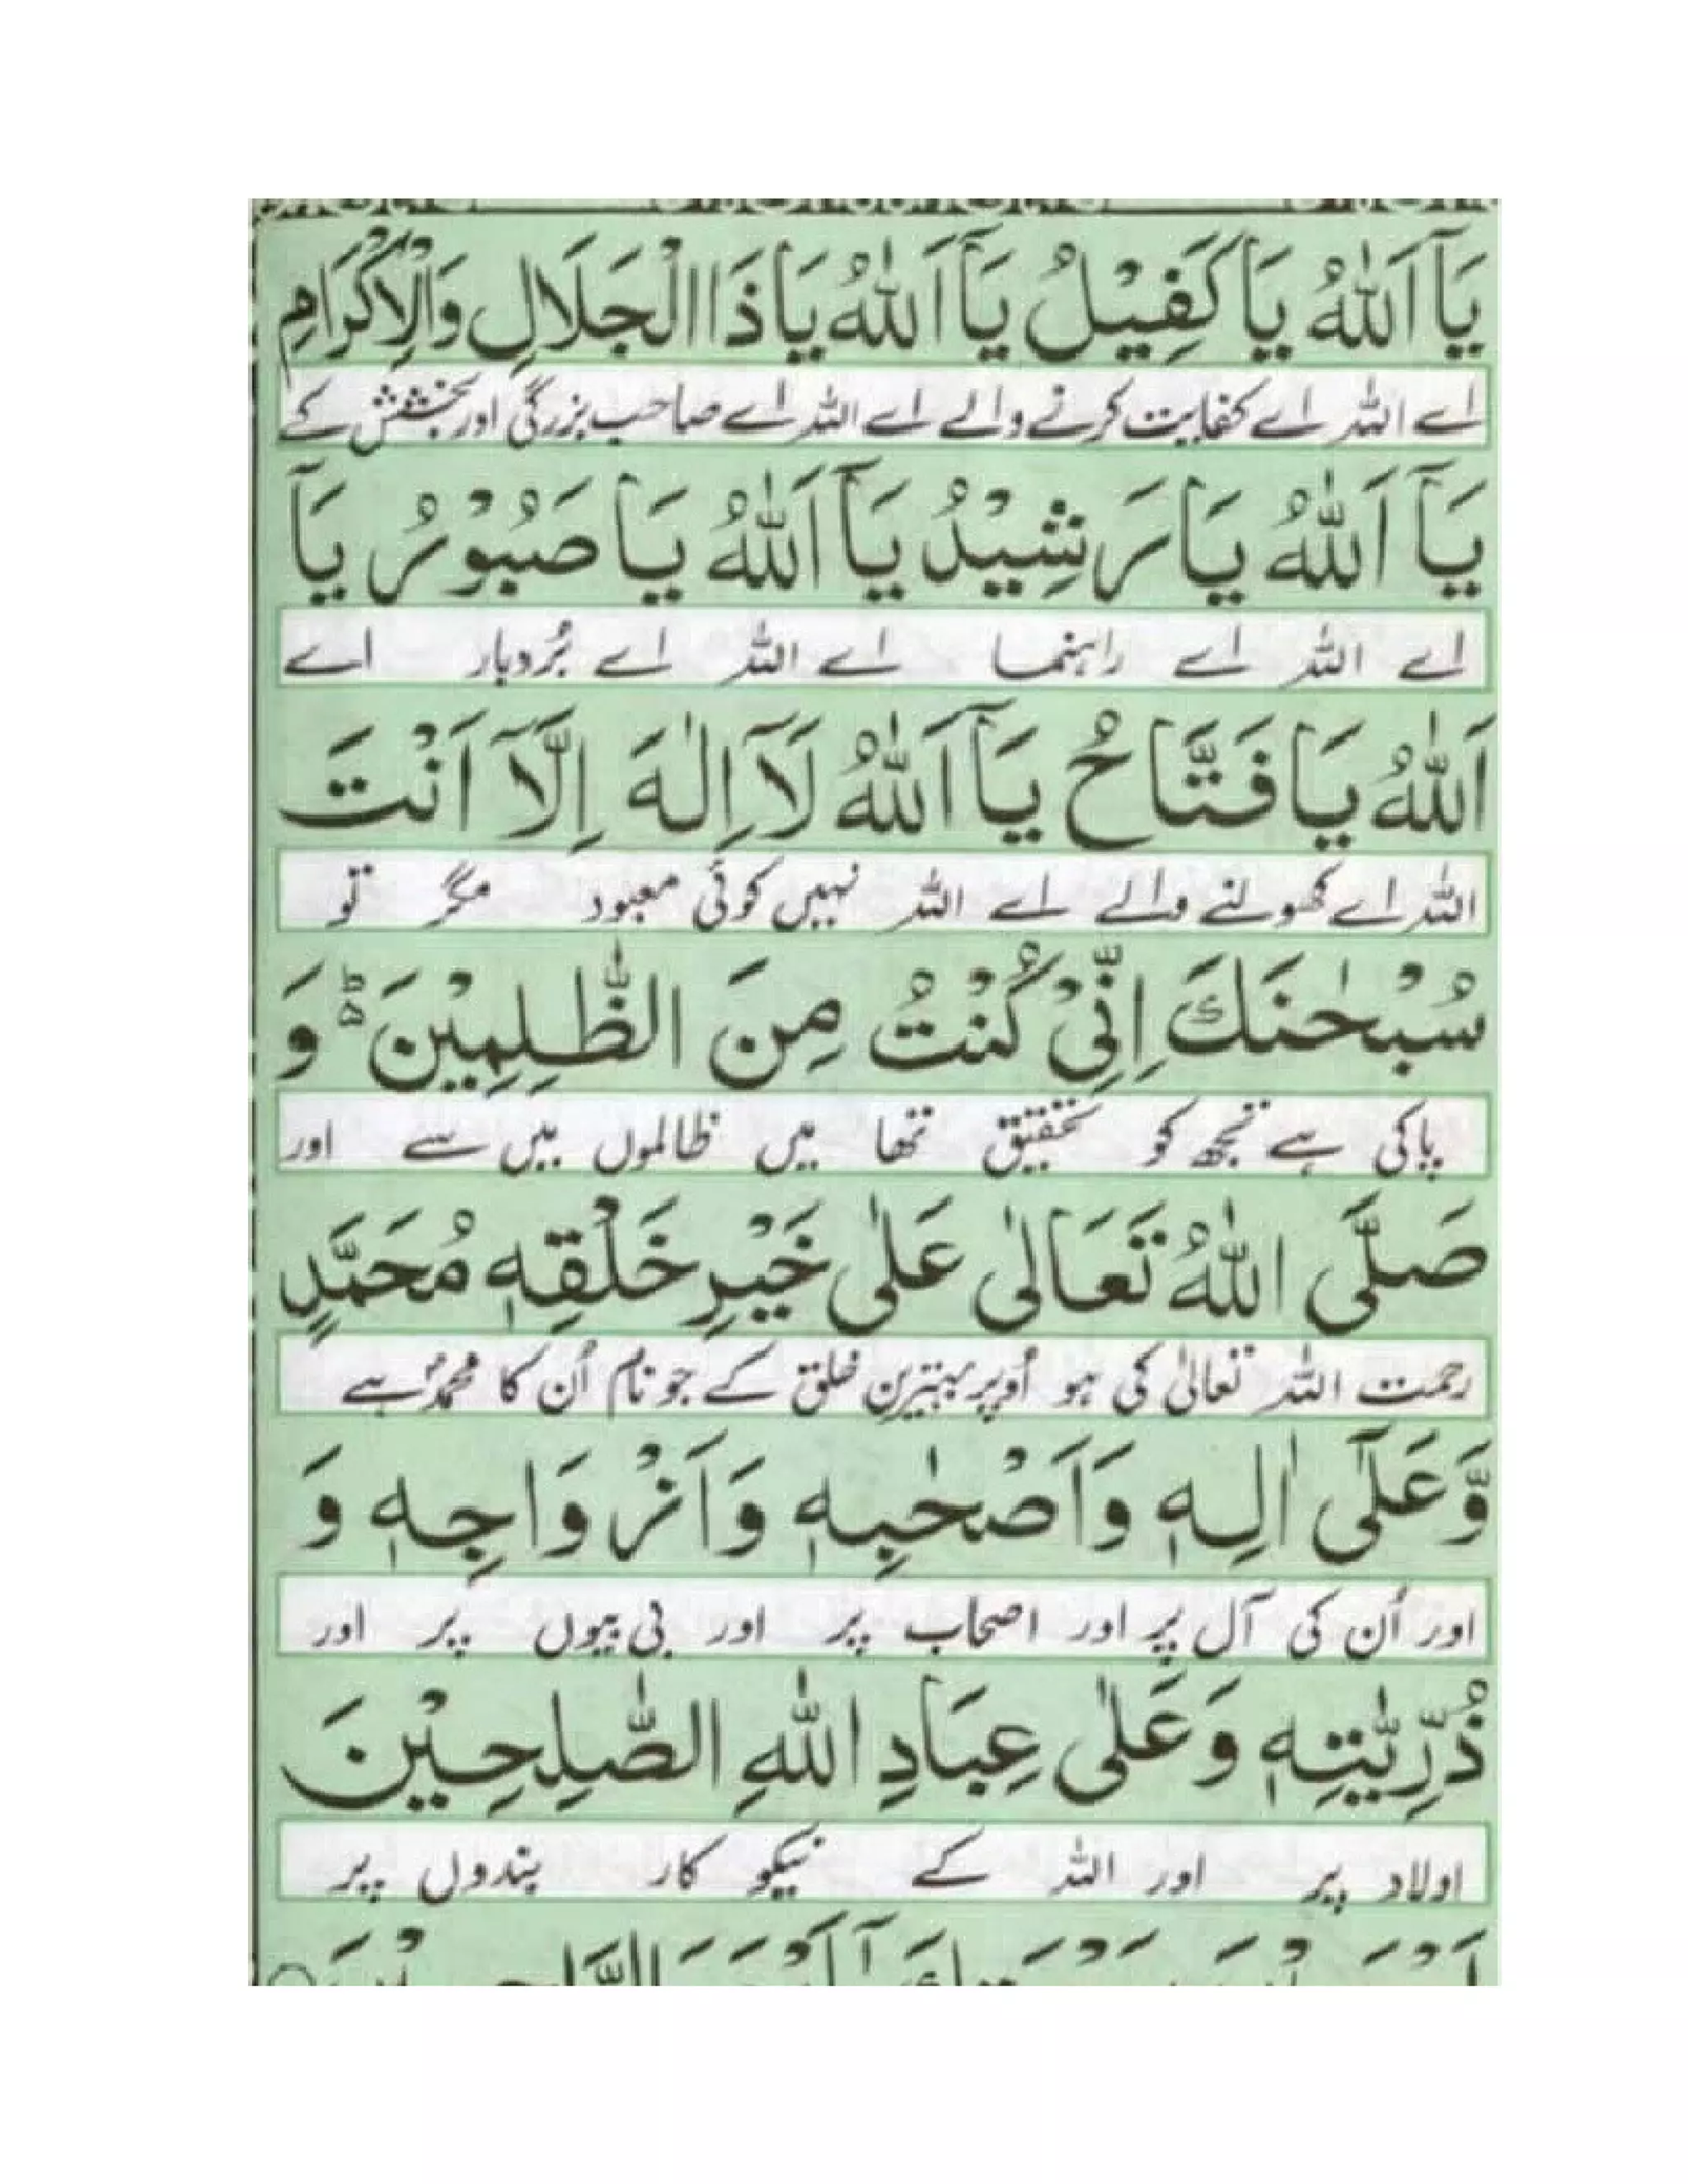 يَآ اَللّٰهُ يَا كَفِيْلُ يَآ اَللّٰهُ يَا ذَا الْجَلَالِ وَالْاِكْرَامِ
اے اللہ اے کفایت کرنے والے اے اللہ اے صاحب بزرگی اور بخشش کے
يَآ اَللّٰهُ يَا رَشِيْدُ يَآ اَللّٰهُ يَا صَبُوْرُ يَآ
اے اللہ اے راہنما اے اللہ اے بُردبار اے
اَللّٰهُ يَا فَتَّاحُ يَآ اَللّٰهُ لَآ اِلٰهَ اِلَّآ اَنْتَ
اللہ اے کھولنے والے اے اللہ نہیں کوئی معبود مگر تو
سُبْحٰنَكَ اِنِّيْ كُنْتُ مِنَ الظّٰلِمِيْنَ ؕ وَ
پاکی ہے تجھ کو تحقیق تھا میں ظالموں میں سے اور
صَلَّى اللّٰهُ تَعَالٰى عَلٰى خَيْرِ خَلْقِهٖ مُحَمَّدٍ
رحمت اللہ تعالیٰ کی ہو اُوپر بہترین خلق کے جو نام اُن کا محمدؐ ہے
وَّعَلٰٓى اٰلِهٖ وَاَصْحٰبِهٖ وَاَزْوَاجِهٖ وَ
اور اُن کی آل پر اور اصحاب پر اور بی بیوں پر اور
ذُرِّيّٰتِهٖ وَعَلٰى عِبَادِ اللّٰهِ الصّٰلِحِيْنَ
اولاد پر اور اللہ کے نیکو کار بندوں پر